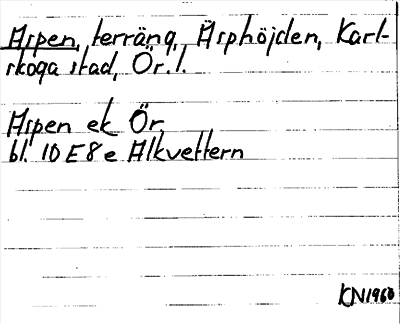 Aspen, terräng, Äsphöjden, Karl-
skoga stad, Ör. l.
Aspen ek Ör,
bl. 10 E 8 e Alkvettern
KN 1968